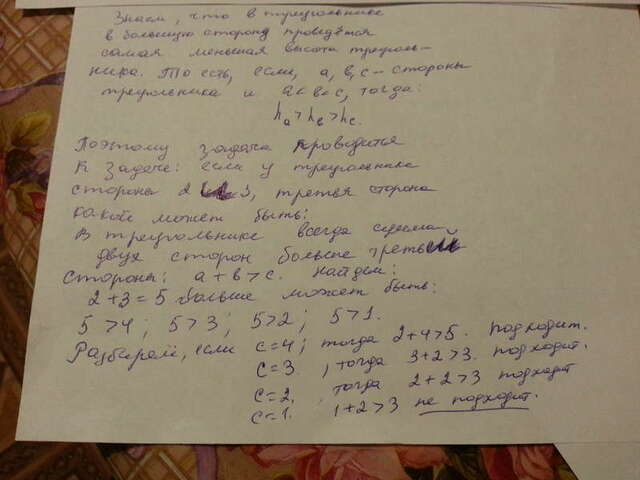 Знаем, что в треугольнике
в большую сторону проведётся
самая меньшая высота треуголь-
ника. То есть, если, a, b, c - стороны
треугольника и a<b<c, тогда:
ha>hв>hc.
Поэтому задача проводится
к задаче: если у треугольника
стороны 2 3, третья сторона
какое может быть:
В треугольнике всегда сумма
двух сторон больше третьей
стороны: a+b>c. Найдем:
2+3=5 больше может быть:
5>4; 5>3; 5>2; 5>1.
Разбираем, если c=4; тогда 2+4>5. подходит.
c=3, тогда 3+2>3. подходит.
c=2, тогда 2+2>3 подходит
c=1. 1+2>3 не подходит.